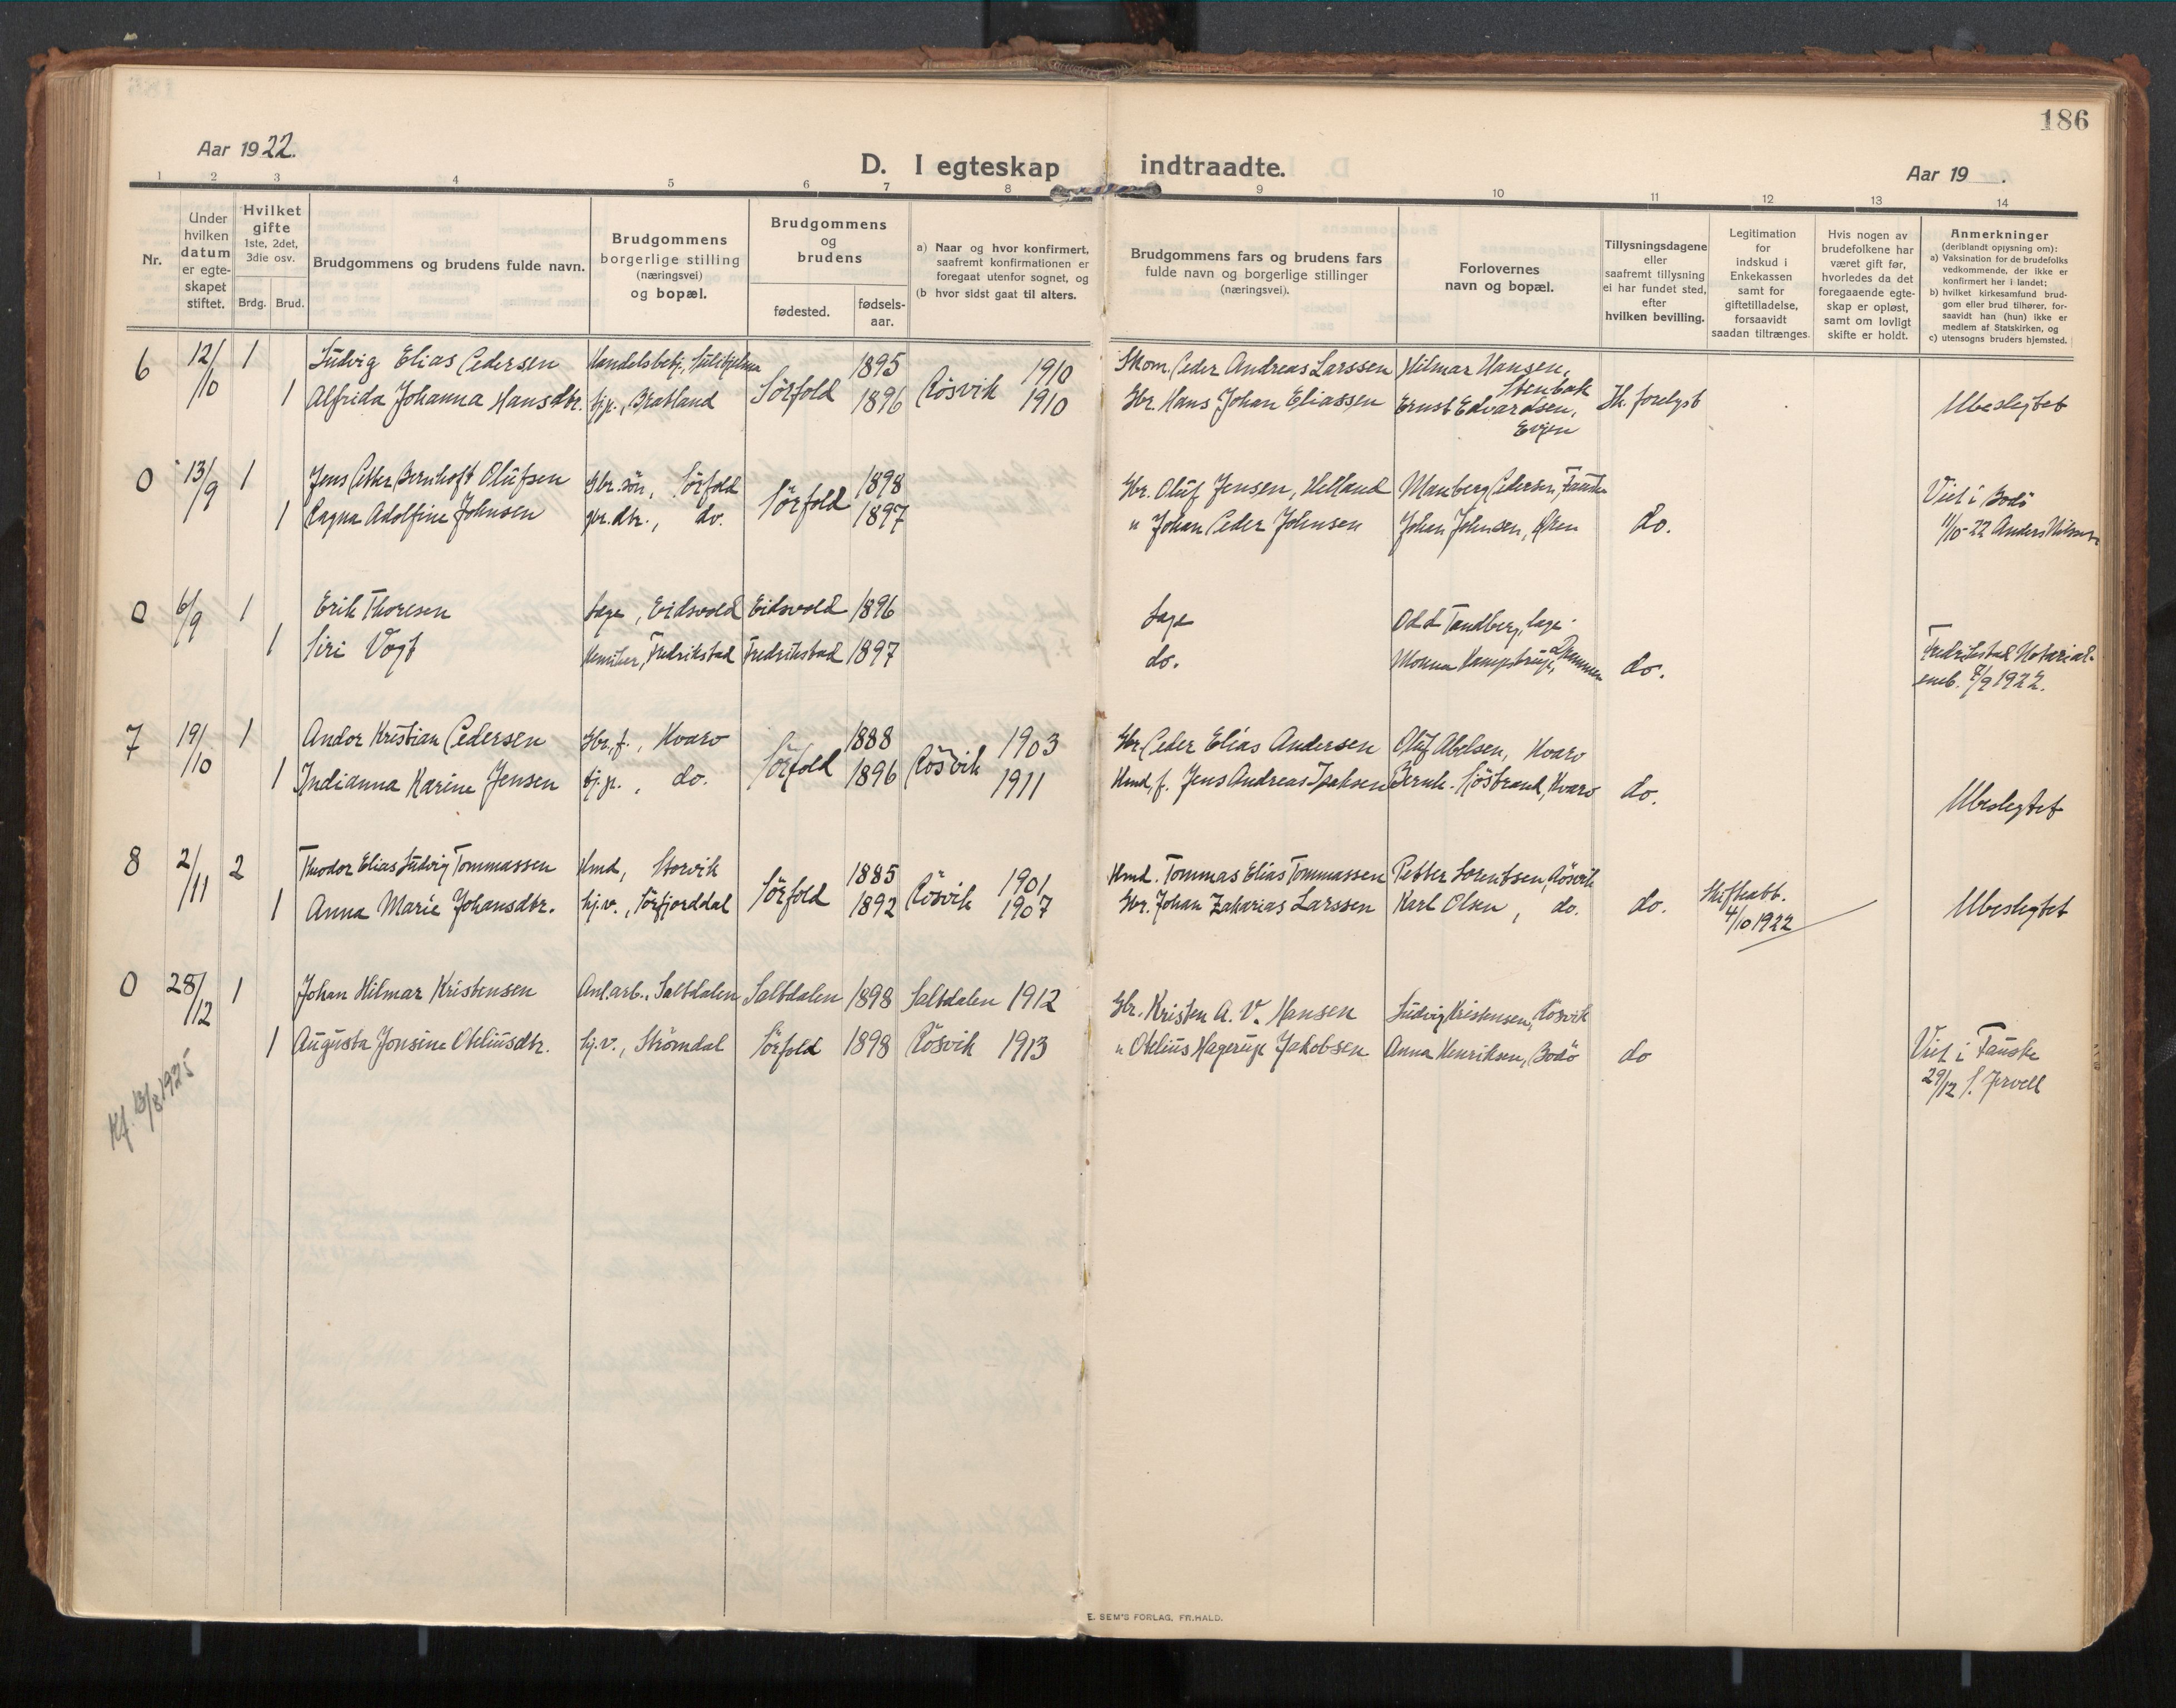 186
Aar 1922.
D. I egteskap indtraadte.
Aar 19 .
1 2 3 4 5 6 7 8 9 10 11 12 13 14
Nr.
Under hvilken datum er egte-skapet stiftet.
Hvilket gifte 1ste, 2det, 3die osv.
Brdg. Brud.
Brudgommens og brudens fulde navn.
Brudgommens borgerlige stilling (næringsvei) og bopæl.
Brudgommens og brudens
fødested. fødsels-aar.
a) Naar og hvor konfirmert, saafremt konfirmationen er foregaat utenfor sognet, og
(b hvor sidst gaat til alters.
Brudgommens fars og brudens fars fulde navn og borgerlige stillinger (næringsvei).
Forlovernes navn og bopæl.
Tillysningsdagene eller saafremt tillysning ei har fundet sted, efter hvilken bevilling.
Legitimation for indskud i Enkekassen samt for giftetilladelse, forsaavidt saadan tiltrænges.
Hvis nogen av brudefolkene har været gift før, hvorledes da det foregaaende egte-skap er opløst, samt om lovligt skifte er holdt.
Anmerkninger (deriblandt opjysning om):
a) Vaksination for de brudefolks vedkommende, der ikke er konfirmert her i landet;
b) hvilket kirkesamfund brud-gom eller brud tilhører, for-saavidt han (hun) ikke er medlem af Statskirken, og
c) utensogns bruders hjemsted.
6 12/10 1 Ludvig Elias Pedersen Handelsbetj., Sulitjelma Sörfold 1895 Rösvik 1910 Skom. Peder Andreas Larssen Hilmar Hansen, Stenbak
1 Alfrida Johanna Hansdtr. tj.p., Bratland 1896 1910 Gbr. Hans Johan Eliassen Ernst Edvardsen, Evjen Th. forelyst Ubeslegtet
0 13/9 1 Jens Petter Bernhoft Olufsen Gbr. sön, Sörfold Sörfold 1898 Gbr. Oluf Jensen, Helland Manberg Pedersen, Fauske Viet i Bodö
1 Ragna Adolfine Johnsen gbr. dtr., do. 1897 " Johan Peder Johnsen Johan Johnsen, do. 11/10-22 Anders Nilssen
0 6/9 1 Erik Thoresen Læge, Eidsvold Eidsvold 1896 Læge Odd Tandberg, læge
1 Siri Vogt Fredrikstad Fredrikstad 1897 do. Mouna Kampstrup, Drammen do. Fredrikstad Notarial-
emb. 7/9 1922.
7 19/10 1 Andor Kristian Pedersen Gbr., f., Kvarv Sörfold 1888 Rösvik 1903 Gbr. Peder Elias Andersen Oluf Abelsen, Kvarv
1 Indianna Karine Jensen tj.p., do. 1896 1911 Hmd, f. Jens Andreas Isaksen Bernh. Sjöstrand, Kvarv do. Ubeslegtet
8 2/11 2 Theodor Elias Ludvig Tommassen Hmd, Storvik Sörfold 1885 Rösvik 1901 Hmd. Tommas Elias Tommassen Petter Lorentsen, Rösvik
1 Anna Marie Johansdtr. hj.v., Sörfjorddal 1892 1907 Gbr. Johan Zakarias Larssen Karl Olsen, do. do. Skifteatt. 4/10 1922 Ubeslegtet
0 28/12 1 Johan Hilmar Kristensen Anl.arb., Saltdalen Saltdalen 1898 Saltdalen 1912 Gbr. Kristen A. V. Hansen Ludvig Kristensen, Rösvik
1 Augusta Jonsine Oteliusdtr. hj.v., Strömdal Sörfold 1898 Rösvik 1913 " Otelius Hagerup Jakobsen Anna Henriksen, Bodö do Viet i Fauske
29/12 S. Jervell
Kf. 13/8 1925
E. SEM'S FORLAG, FR.HALD.